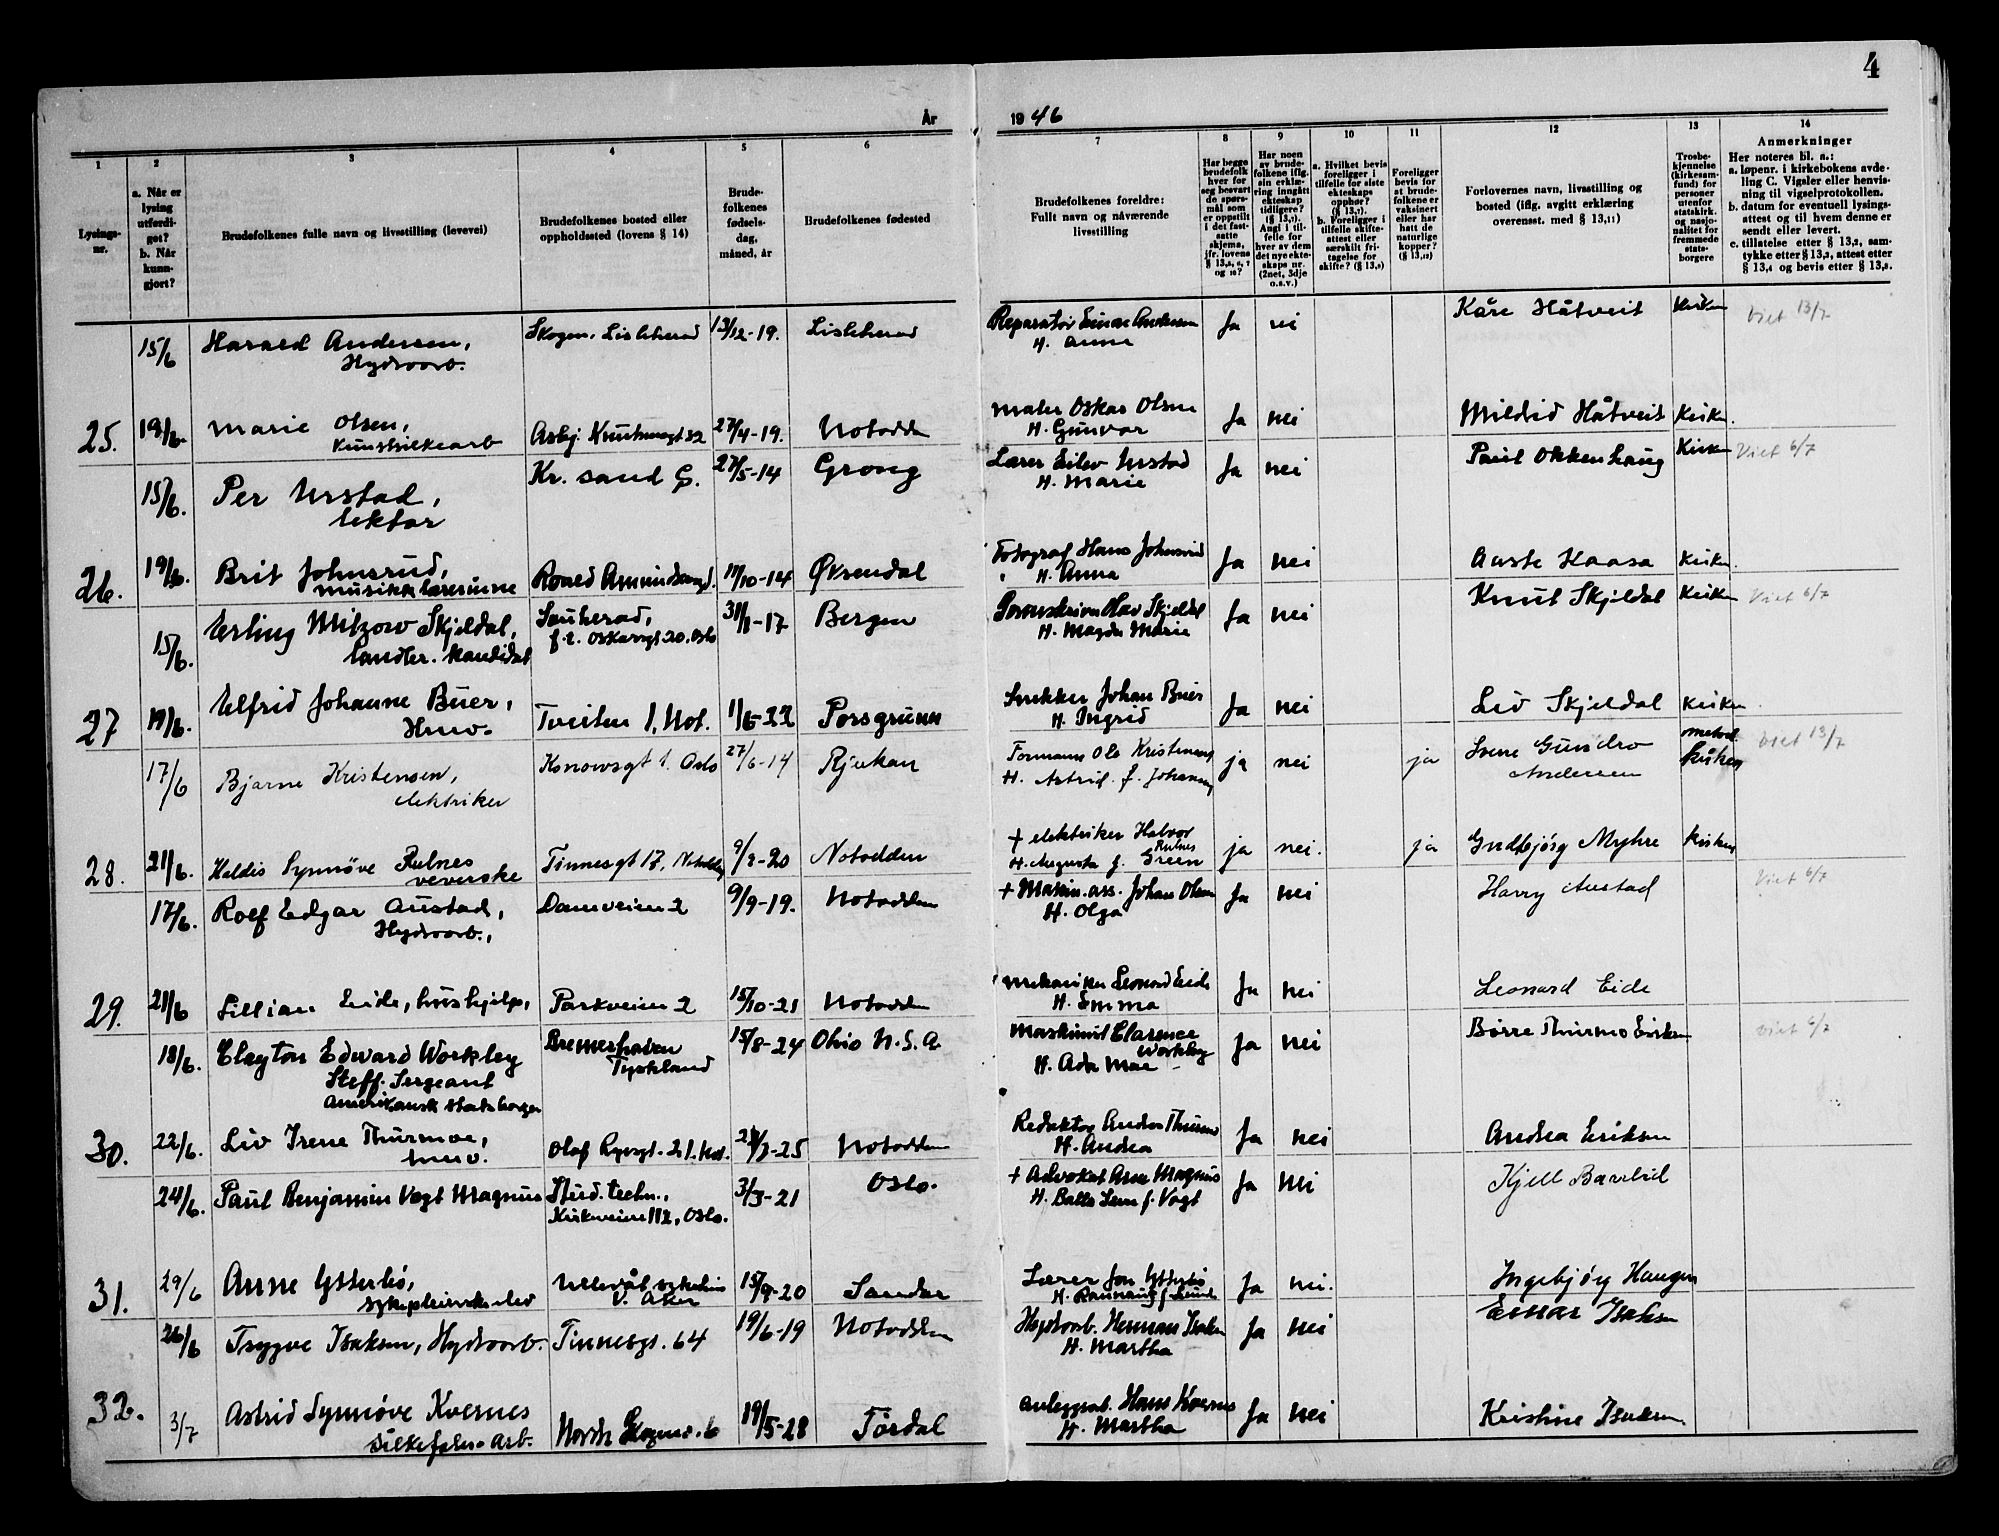 4
År
19 46
1
2
3
4
5
6
7
8
9
10
11
12
13
14
Lysings-
nr.
a. Når er
lysing
utferdi-
get?
b. Når
kunn-
gjort?
Brudefolkenes fulle navn og livsstilling (levevei)
Brudefolkenes bosted eller
oppholdssted (lovens § 14)
Brude-
folkenes
fødsels-
dag,
måned, år
Brudefolkenes fødested
Brudefolkenes foreldre:
Fullt navn og nåværende
livsstilling
Har begge
brudefolk
hver for
seg besvart
de spørs-
mål som
er oppstilt
i det fast-
satte
skjema,
jfr. lovens
Har noen
av brude-
folkene iflg.
sin erklæ-
ring inngått
ekteskap
tidligere?
(§ 13,7).
Angi i til-
felle for
hver av dem
det nye ekte-
skaps nr.
(2net, 3dje
o.s.v.)
a. Hvilket bevis
foreligger i
tilfelle for siste
ekteskaps
opphør?
(§ 13,7).
b. Foreligger i
tilfelle skifte-
attest eller
særskilt fri-
tagelse for
skifte? (§ 13,9)
Foreligger
bevis for
at brude-
folkene er
vaksinert
eller har
hatt de
naturlige
kopper?
(§ 13,12)
Forlovernes navn, livsstilling og
bosted (iflg. avgitt erklæring
overensst. med § 13,11)
Trosbe-
kjennelse
(kirkesam-
fund) for
personer
utenfor
statskirk.
og nasjo-
nalitet for
fremmede
stats-
borgere
Anmerkninger
Her noteres bl. a.:
a. løpenr. i kirkebokens avde-
ling C. Vigsler eller henvis-
ning til vigselprotokollen.
b. datum for eventuell lysings-
attest og til hvem denne er
sendt eller levert.
c. tillatelse etter § 13,2, sam-
tykke etter § 13,3, attest etter
§ 13,4 og bevis etter § 13,8.
15/6 Harald Andersen, Skogen, Lisleherad 13/12-19. Lisleherad Reparatør Einar Andersen Ja nei Kåre Håtveit Kirken Viet 13/7
Hydroarb. H. Anna
25. 19/6. Marie Olsen, Asbj. Knutsensgt 32 27/4-19. Notodden Maler Oskar Olsen Ja nei Mildrid Håtveit Kirken.
Kunstsilkearb H. Gunvor
15/6. Per Urstad, Kr. sand S. 27/5-14 Grong Lærer Eilev Urstad Ja nei Paul Okkenhaug Kirken Viet 6/7
lektor H. Marie
26. 19/6. Brit Johnsrud, Roald Amundsensgt. 17/10-14 Øksendal Fotograf Hans Johnsrud Ja nei Aaste Haasa Kirken.
musikklærerinne H. Anna
15/6. Erling Mitzow Skjeldal, Sauherad, 31/1-17 Bergen Sorenskriver Olav Skjeldal Ja nei Knut Skjeldal Kirken Viet 6/7
landbr. kandidat f.t. Oskarsgt 20. Oslo H. Magda Marie
27 19/6. Alfrid Johanne Buer, Tveiten 1, Not. 1/6-22 Porsgrunn Snekker Johan Buer Ja nei Liv Skjeldal Kirken.
Husv. H. Ingrid
17/6 Bjarne Kristensen, Konowsgt 1. Oslo 27/6-14 Rjukan Formann Ole Kristensen ja nei ja Svene Gundro metod. kirken Viet 13/7
elektriker H. Astrid f. Johansen Andersen
28. 21/6. Haldis Synnøve Rulnes Tinnesgt 17, Notodden 9/2-20 Notodden + elektriker Halvor Rulnes ja nei. ja Gudbjørg Myhre kirken
veverske H. Augusta f. Green
17/6. Rolf Edgar Austad, Damveien 2 9/9-19. Notodden + Maskin.ass. Johan Olsen Ja nei Harry Austad Viet 6/7
Hydroarb., H. Olga
29. 21/6 Lillian Eide, hushjelp, Parkveien 2 15/10-21 Notodden Mekaniker Leonard Eide Ja nei Leonard Eide
H. Emma
18/6. Clayton Edward Workley Bremerhaven 15/8-24 Ohio U.S.A Maskinist Clarence Workley Ja nei Børre Thurmo Eriksen Viet 6/7
Staff. Sergeant Tyskland H. Ada Mae
Amerikansk statsborger
30. 22/6. Liv Irene Thurmoe, Olaf Ryesgt. 21. Not. 21/3-25 Notodden Redaktør Anders Thurmo Ja nei Andrea Eriksen
husv. H. Andrea
24/6. Paul Benjamin Vogt Magnus Stud. techn., 3/3-21 Oslo. + Advokat Arne Magnus Ja nei Kjell Bavelid
Kirkeveien 112, Oslo. H. Balla Lem f. Vogt
31. 29/6 Anne Ytterbø, Ullevål sykehus 15/9-20 Sandar Lærer Jon Ytterbø Ja nei. Ingebjørg Haugen
sykepleierskeelev V. Aker H. Rannaug f. Lunde
26/6 Trygve Isaksen, Hydroarb. Tinnesgt. 64 19/6-19 Notodden Hydroarb. Herman Isaksen Ja nei Einar Isaksen
H. Martha
32. 3/7 Astrid Synnøve Kvernes 19/5-28 Tørdal Anleggsarb. Hans Kvernes Ja nei Kristine Isaksen
Silkefabr. Arb. H. Martha